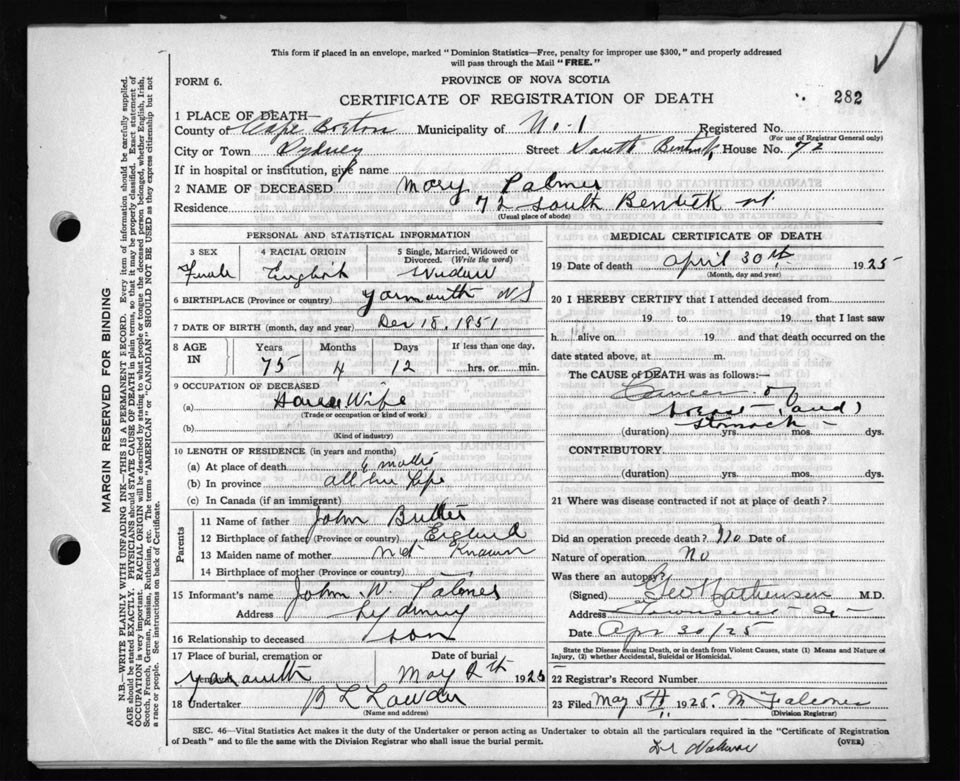 This form if placed in an envelope, marked "Dominion Statistics—Free, penalty for improper use $300," and properly addressed
will pass through the Mail "FREE."
FORM 6.
PROVINCE OF NOVA SCOTIA
CERTIFICATE OF REGISTRATION OF DEATH
282
1 PLACE OF DEATH—
County of Cape Breton Municipality of No. 1 Registered No.
(For use of Registrar General only)
City or Town Sydney Street South Bentick, House No. 72
If in hospital or institution, give name
2 NAME OF DECEASED Mary Palmer
Residence 72 South Bentick st.
(Usual place of abode)
PERSONAL AND STATISTICAL INFORMATION
3 SEX
Female
4 RACIAL ORIGIN
English
5 Single, Married, Widowed or
Divorced. (Write the word)
Widow
6 BIRTHPLACE (Province or country) Yarmouth NS
7 DATE OF BIRTH (month, day and year) Dec 18, 1851
8 AGE
IN
Years
75
Months
4
Days
12
If less than one day,
hrs. or min.
9 OCCUPATION OF DECEASED
(a) House Wife
(Trade or occupation or kind of work)
(b)
(Kind of industry)
10 LENGTH OF RESIDENCE (in years and months)
(a) At place of death
(b) In province all her Life
(c) In Canada (if an immigrant)
Parents
11 Name of father John Butler
12 Birthplace of father (Province or country) England
13 Maiden name of mother not Known
14 Birthplace of mother (Province or country)
15 Informant's name John W. Palmer
Address Sydney
16 Relationship to deceased son
17 Place of burial, cremation or
Date of burial
Yarmouth May 2th 1925
18 Undertaker
(Name and address)
MEDICAL CERTIFICATE OF DEATH
19 Date of death April 30th 1925
(Month, day and year)
20 I HEREBY CERTIFY that I attended deceased from
19 to 19 that I last saw
h alive on 19 and that death occurred on the
date stated above, at m.
The CAUSE of DEATH was as follows:—
Cancer of
breast (and)
Stomach
(duration) yrs. mos. dys.
CONTRIBUTORY
(duration) yrs. mos. dys.
21 Where was disease contracted if not at place of death?
Did an operation precede death? No Date of
Nature of operation No
Was there an autopsy?
(Signed) M.D.
Address Townsend St
Date Apr 30/25
State the Disease causing Death, or in death from Violent Causes, state (1) Means and Nature of
Injury, (2) whether Accidental, Suicidal or Homicidal.
22 Registrar's Record Number
23 Filed May 5th 1925.
(Division Registrar)
SEC. 46—Vital Statistics Act makes it the duty of the Undertaker or person acting as Undertaker to obtain all the particulars required in the "Certificate of Registration
of Death" and to file the same with the Division Registrar who shall issue the burial permit.
(OVER)
MARGIN RESERVED FOR BINDING
N.B.—WRITE PLAINLY WITH UNFADING INK—THIS IS A PERMANENT RECORD. Every item of information should be carefully supplied.
AGE should be stated EXACTLY. PHYSICIANS should STATE CAUSE OF DEATH in plain terms, so that it may be properly classified. Exact statement of
OCCUPATION is very important. RACIAL ORIGIN will be described by stating to what people or tongue the deceased person belonged, whether English, Irish,
Scotch, French, German, Russian, Ruthenian, etc. The terms "AMERICAN" or "CANADIAN" SHOULD NOT BE USED as they express citizenship but not
a race or people. See instructions on back of Certificate.